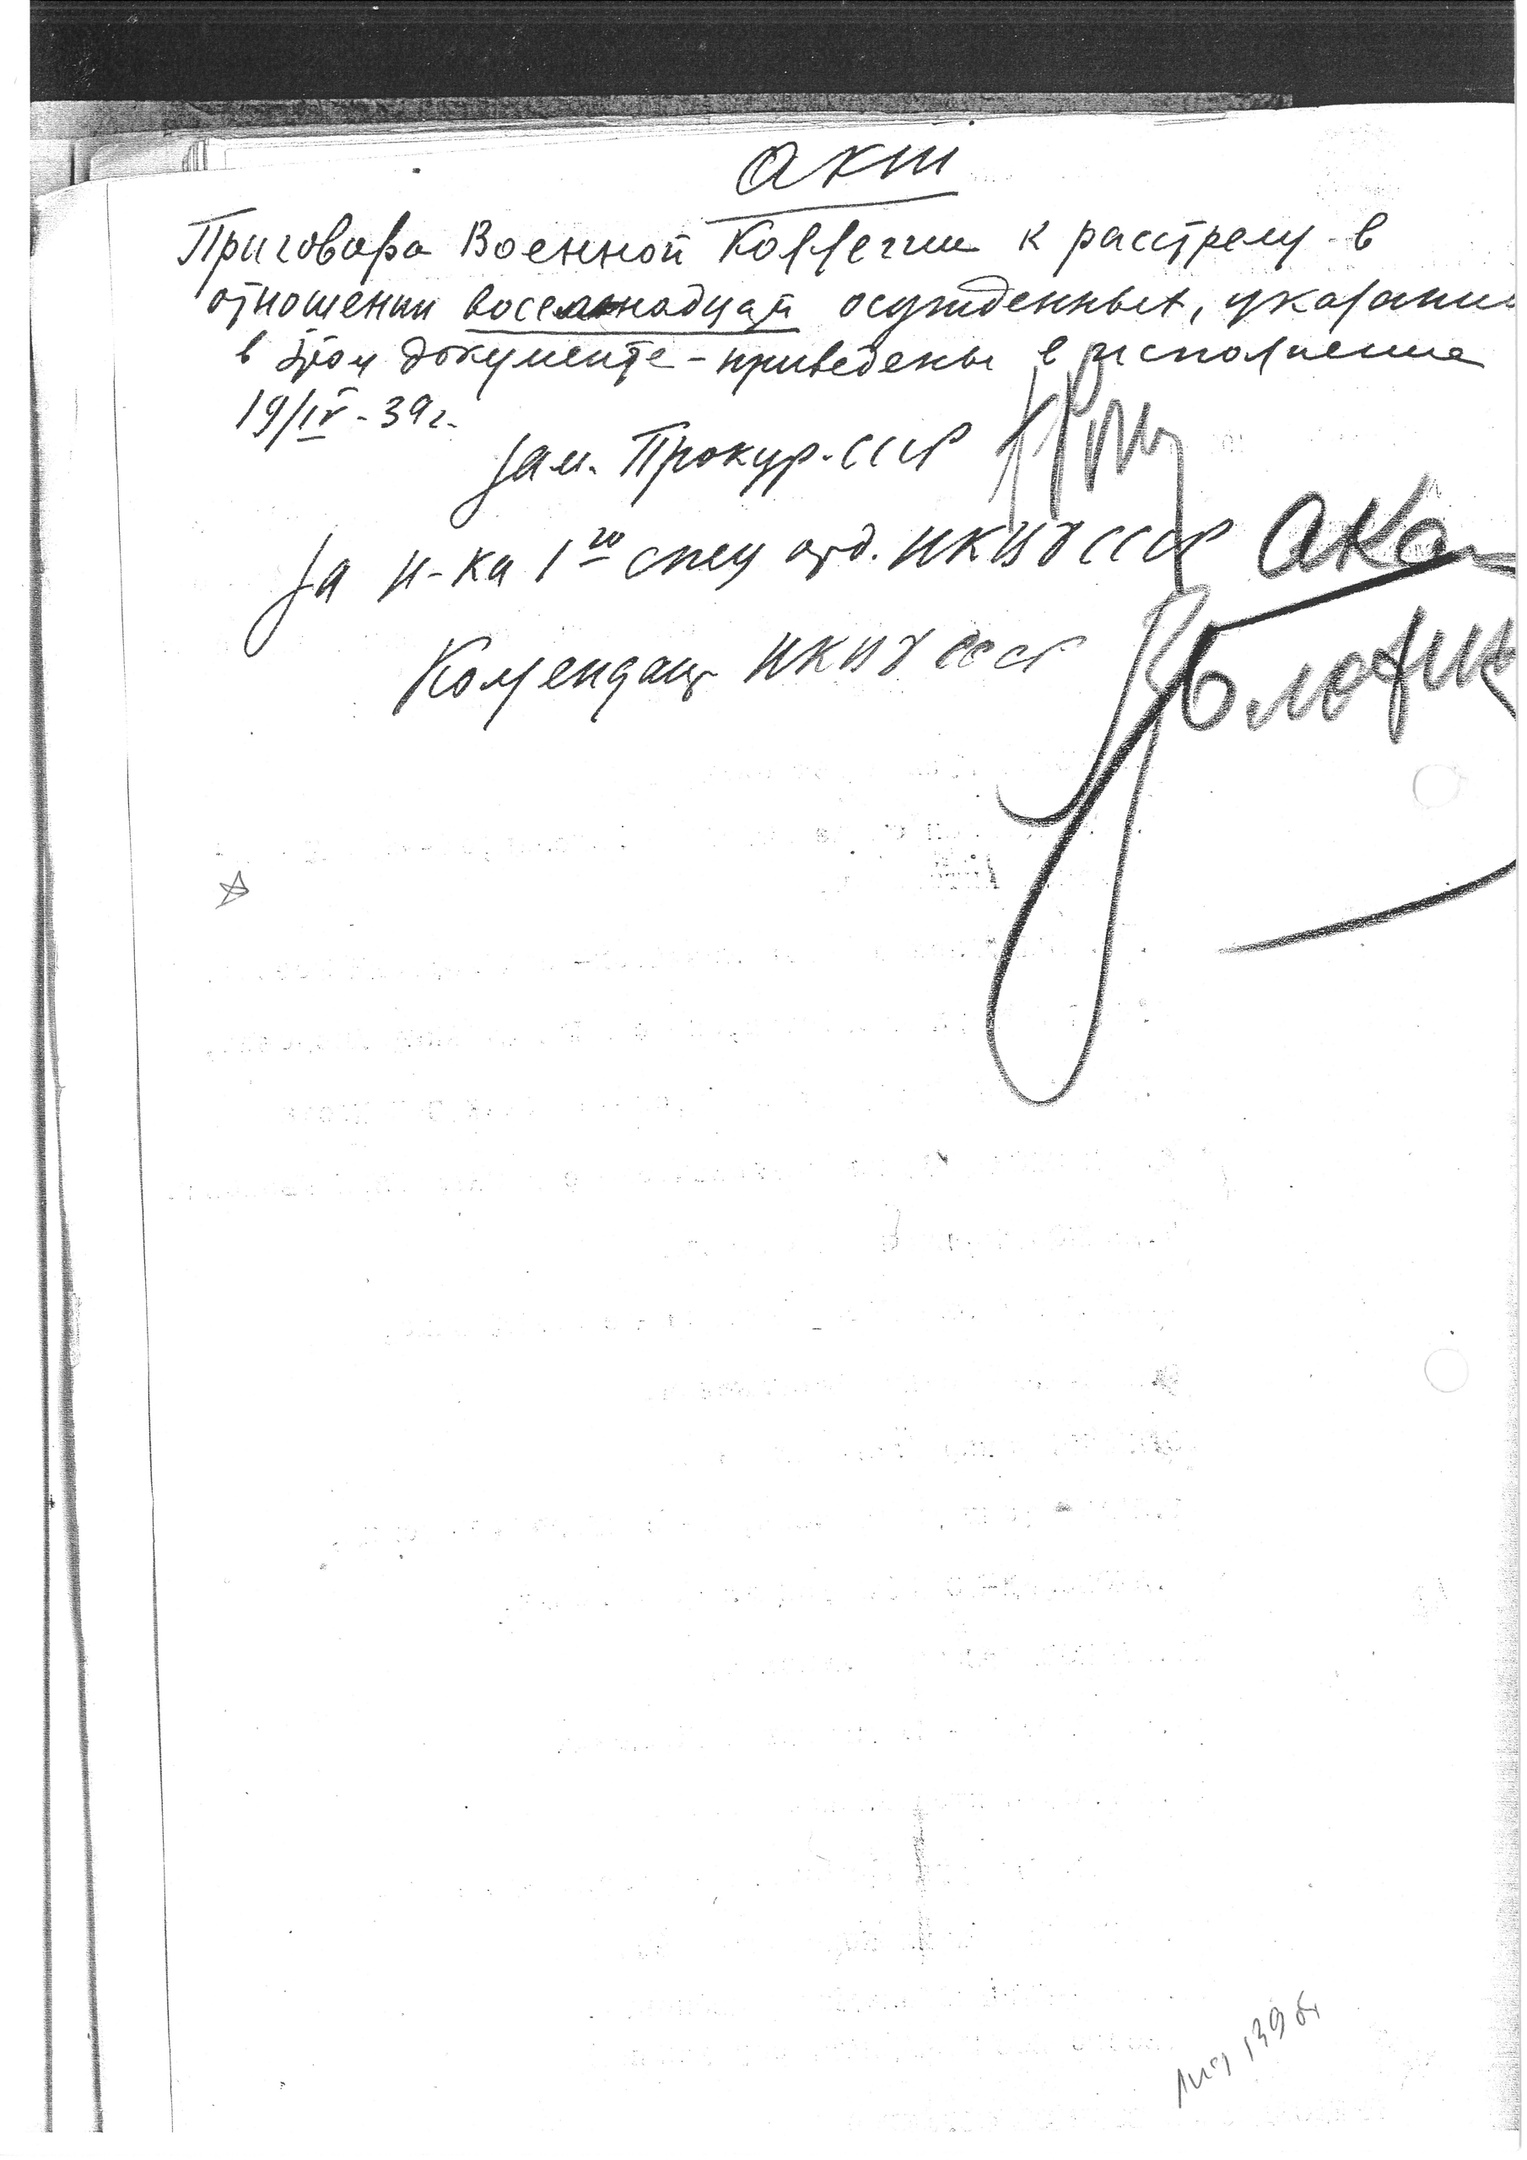 Акт
Приговора Военной Коллегии к расстрелу в
отношении восемнадцати осужденных, указани
в этом документе - приведены в исполнение
19/IV-39г.
Зам. Прокур. СССР
За н-ка 1го спец отд. НКВД СССР
Комендант НКВД СССР
Блохин
Лист 139 об